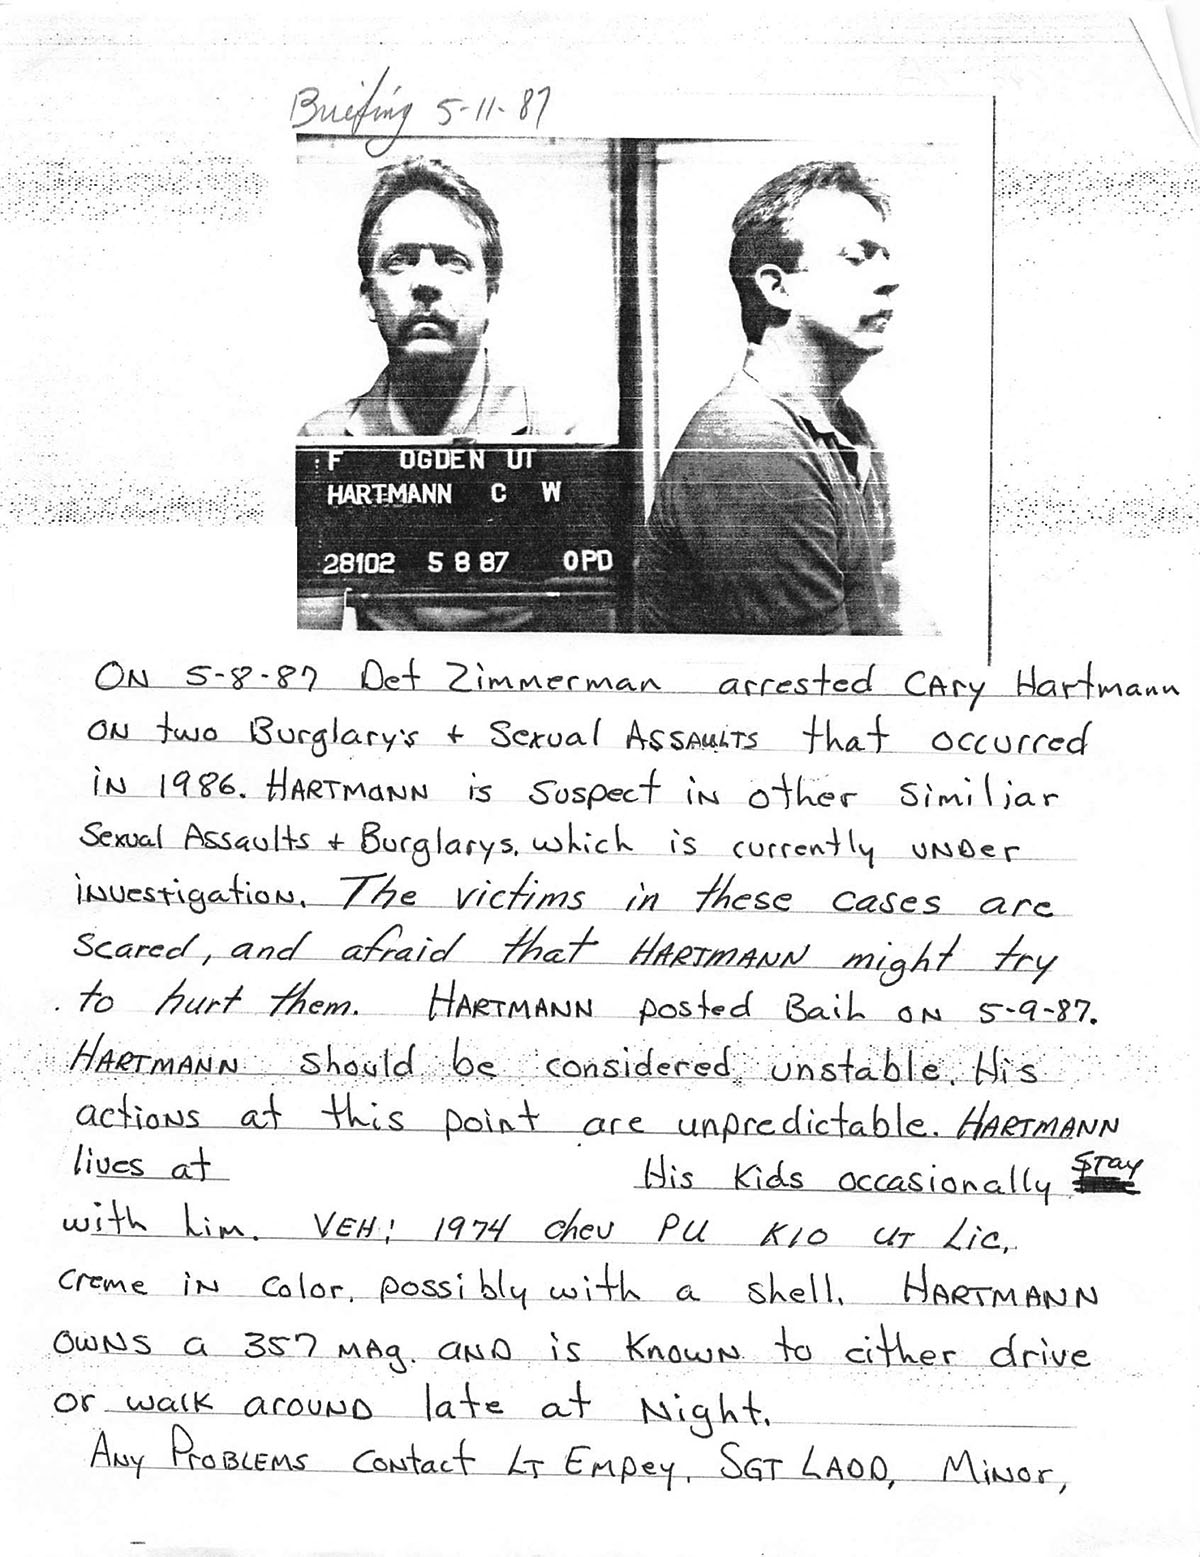 Briefing 5-11-87
: F OGDEN UT
HARTMANN C W
28102 5 8 87 OPD
ON 5-8-87 Det Zimmerman arrested CAry Hartmann
ON two Burglary's + Sexual ASSAULTS that occurred
iN 1986. HARTMANN is Suspect iN other similiar
Sexual Assaults + Burglarys, which is currently UNDer
iNvestigatioN. The victims in these cases are
Scared, and afraid that HARTMANN might try
to hurt them. HARTMANN posted Bail ON 5-9-87.
HARTMANN should be considered unstable. His
actioNs at this point are unpredictable. HARTMANN
lives at His Kids occasionally Stay
with him. VEH: 1974 chev PU K10 UT Lic,
creme iN color, possibly with a shell. HARTMANN
OWNS a 357 MAg. AND is KNOWN to either drive
or walk arouND late at Night.
ANy PROBLEMS CoNtact LT Empey, SGT LADD, MiNor,